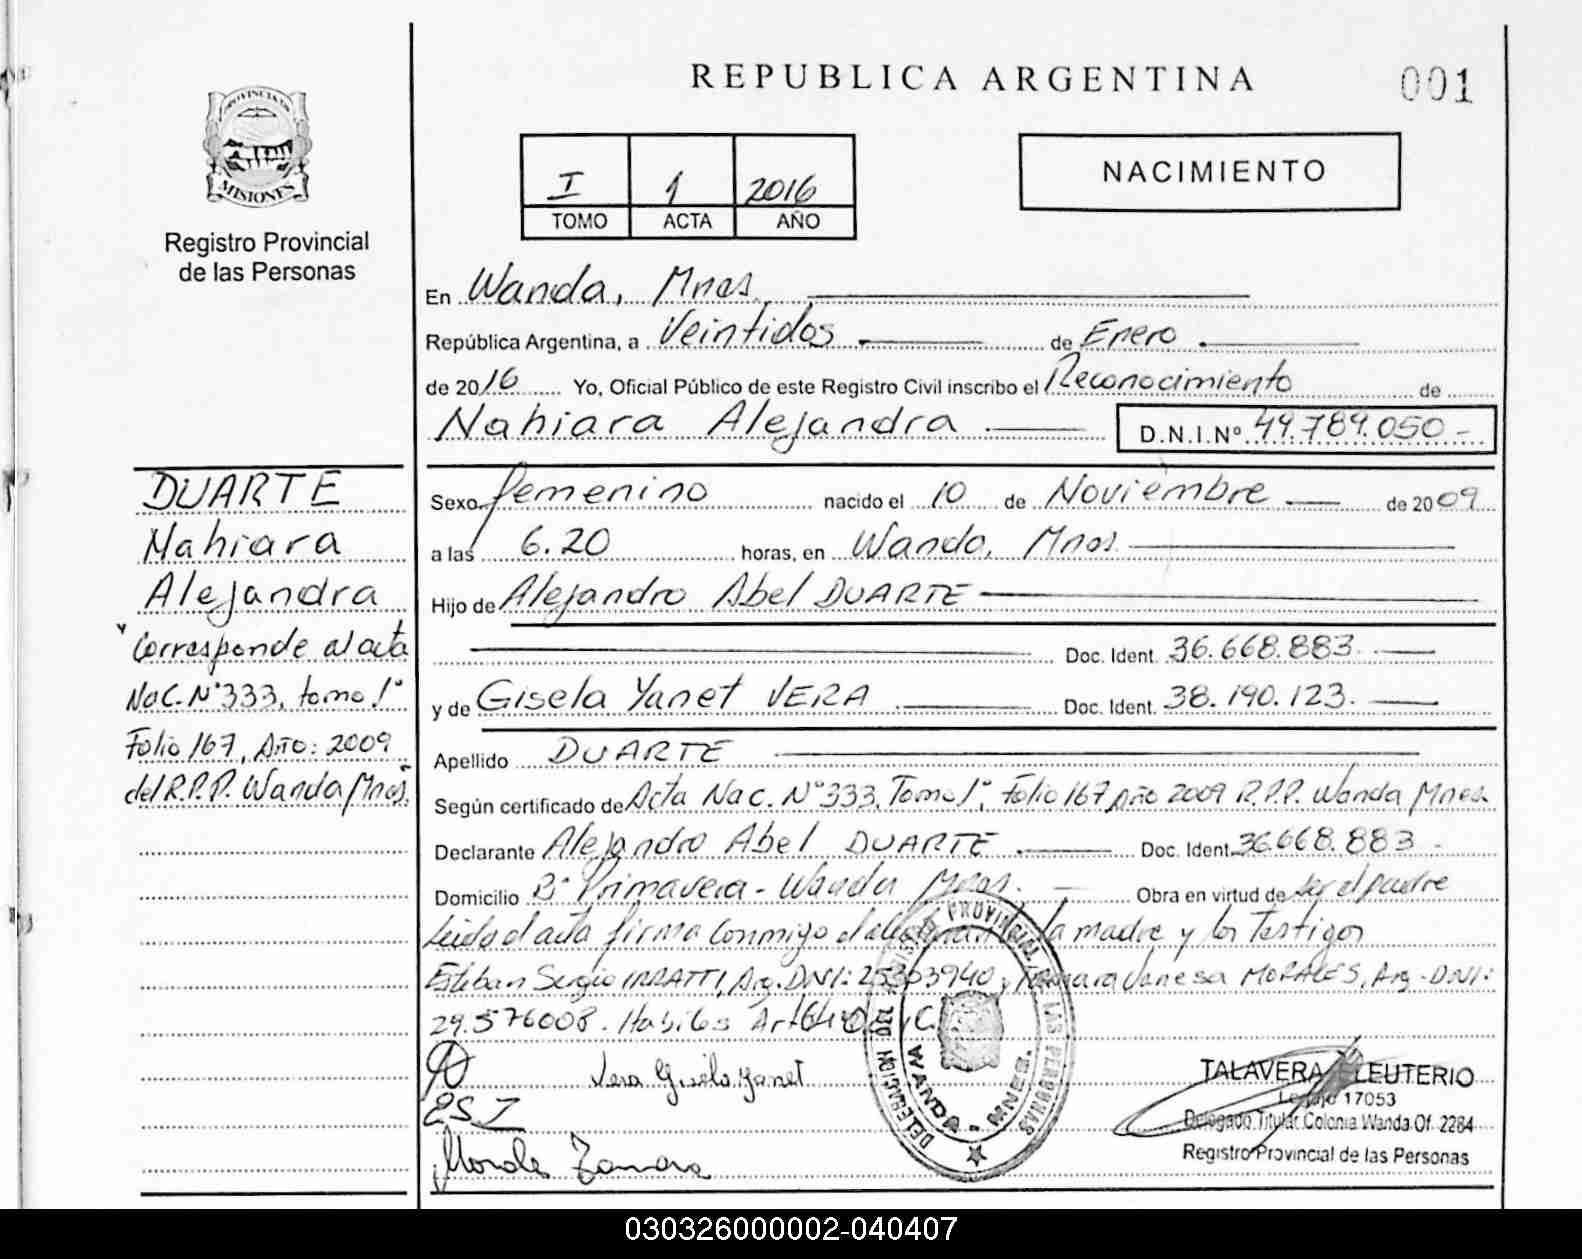 REPUBLICA ARGENTINA
001
PROVINCIA DE
MISIONES
Registro Provincial
de las Personas
I 1 2016
TOMO ACTA AÑO
NACIMIENTO
En Wanda, Mnes.
República Argentina, a Veintidos de Enero
de 2016 Yo, Oficial Público de este Registro Civil inscribo el Reconocimiento de
Nahiara Alejandra D.N.I.Nº 49.789.050-
DUARTE
Nahiara
Alejandra
Corresponde al acta
Nac. N°333, tomo 1°
Folio 167, Año: 2009
del R.P.P. Wanda Mnes.
Sexo femenino nacido el 10 de Noviembre de 2009
a las 6.20 horas, en Wanda, Mnes.
Hijo de Alejandro Abel DUARTE
Doc. Ident. 36.668.883.
y de Gisela Yanet VERA Doc. Ident. 38.190.123.
Apellido DUARTE
Según certificado de Acta Nac. N°333, Tomo 1°, Folio 167 Año 2009 R.P.P. Wanda Mnes
Declarante Alejandro Abel DUARTE Doc. Ident. 36.668.883-
Domicilio B° Primavera - Wanda Mnes. Obra en virtud de ser el padre
Leida el acta firma conmigo el la madre y los testigos
Esteban Sergio IRRATTI, Arg. DNI: 25303940, Tamara Vanesa MORALES, Arg-DNI:
29.576008. Habiles
Vera Gisela Yanet
ESI
Morales Tamara
DELEGACION DEL REGISTRO PROVINCIAL DE LAS PERSONAS
WANDA - MNES.
TALAVERA ELEUTERIO
Legajo 17053
Delegado Titular Colonia Wanda Of. 2284
Registro Provincial de las Personas
030326000002-040407